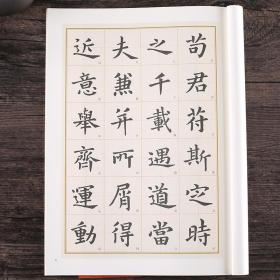 苟君苻斯定時
之千載遇道當
夫兼并所屑得
近意舉齊運動